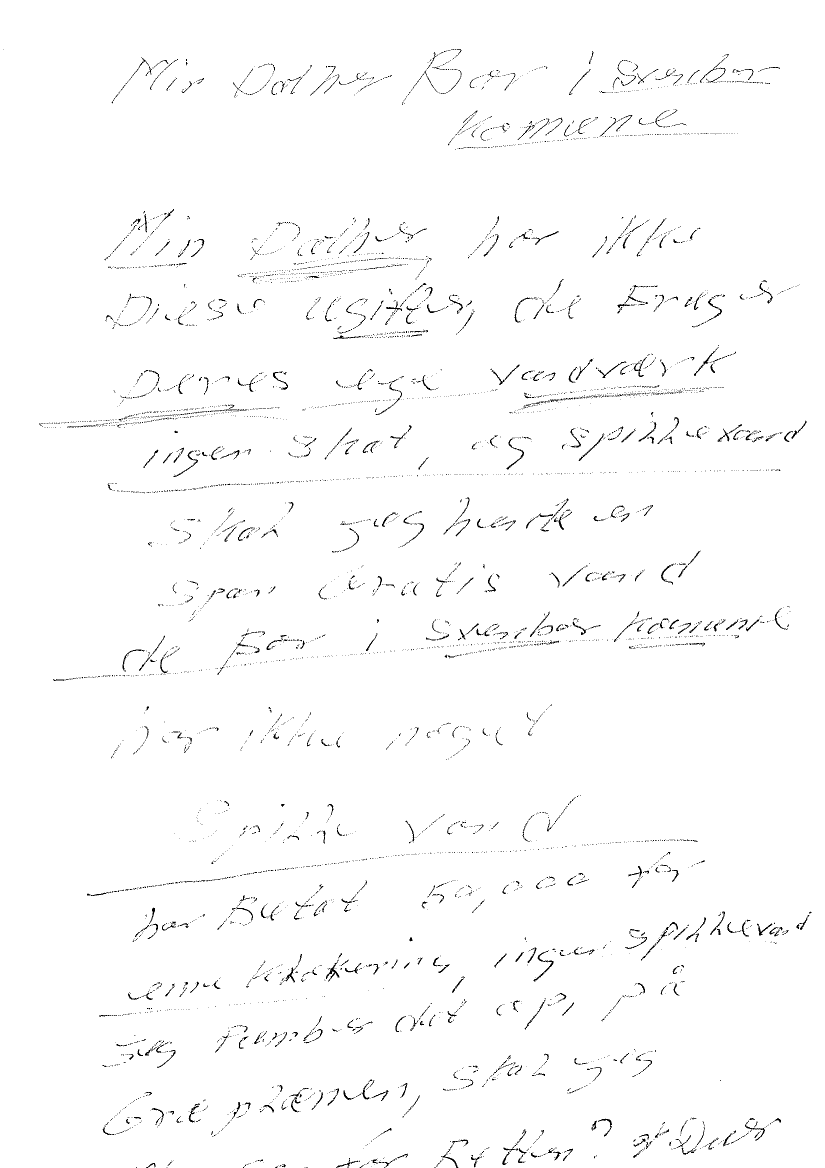 Min Dother Bor i Svenbor
Komune
Min Dother, har ikke
Diese ugifter, de Bruger
Deres ege vandværk
ingen skat, og spillevand
Skal jeg hente en
Span Gratis vand
de Bor i Svenbor Komune
har ikke noget
Spille vand
har Betat 50,000 for
ingen spillevand
jeg Pumber det op, på
Græplænen, skal jeg
for Retten?